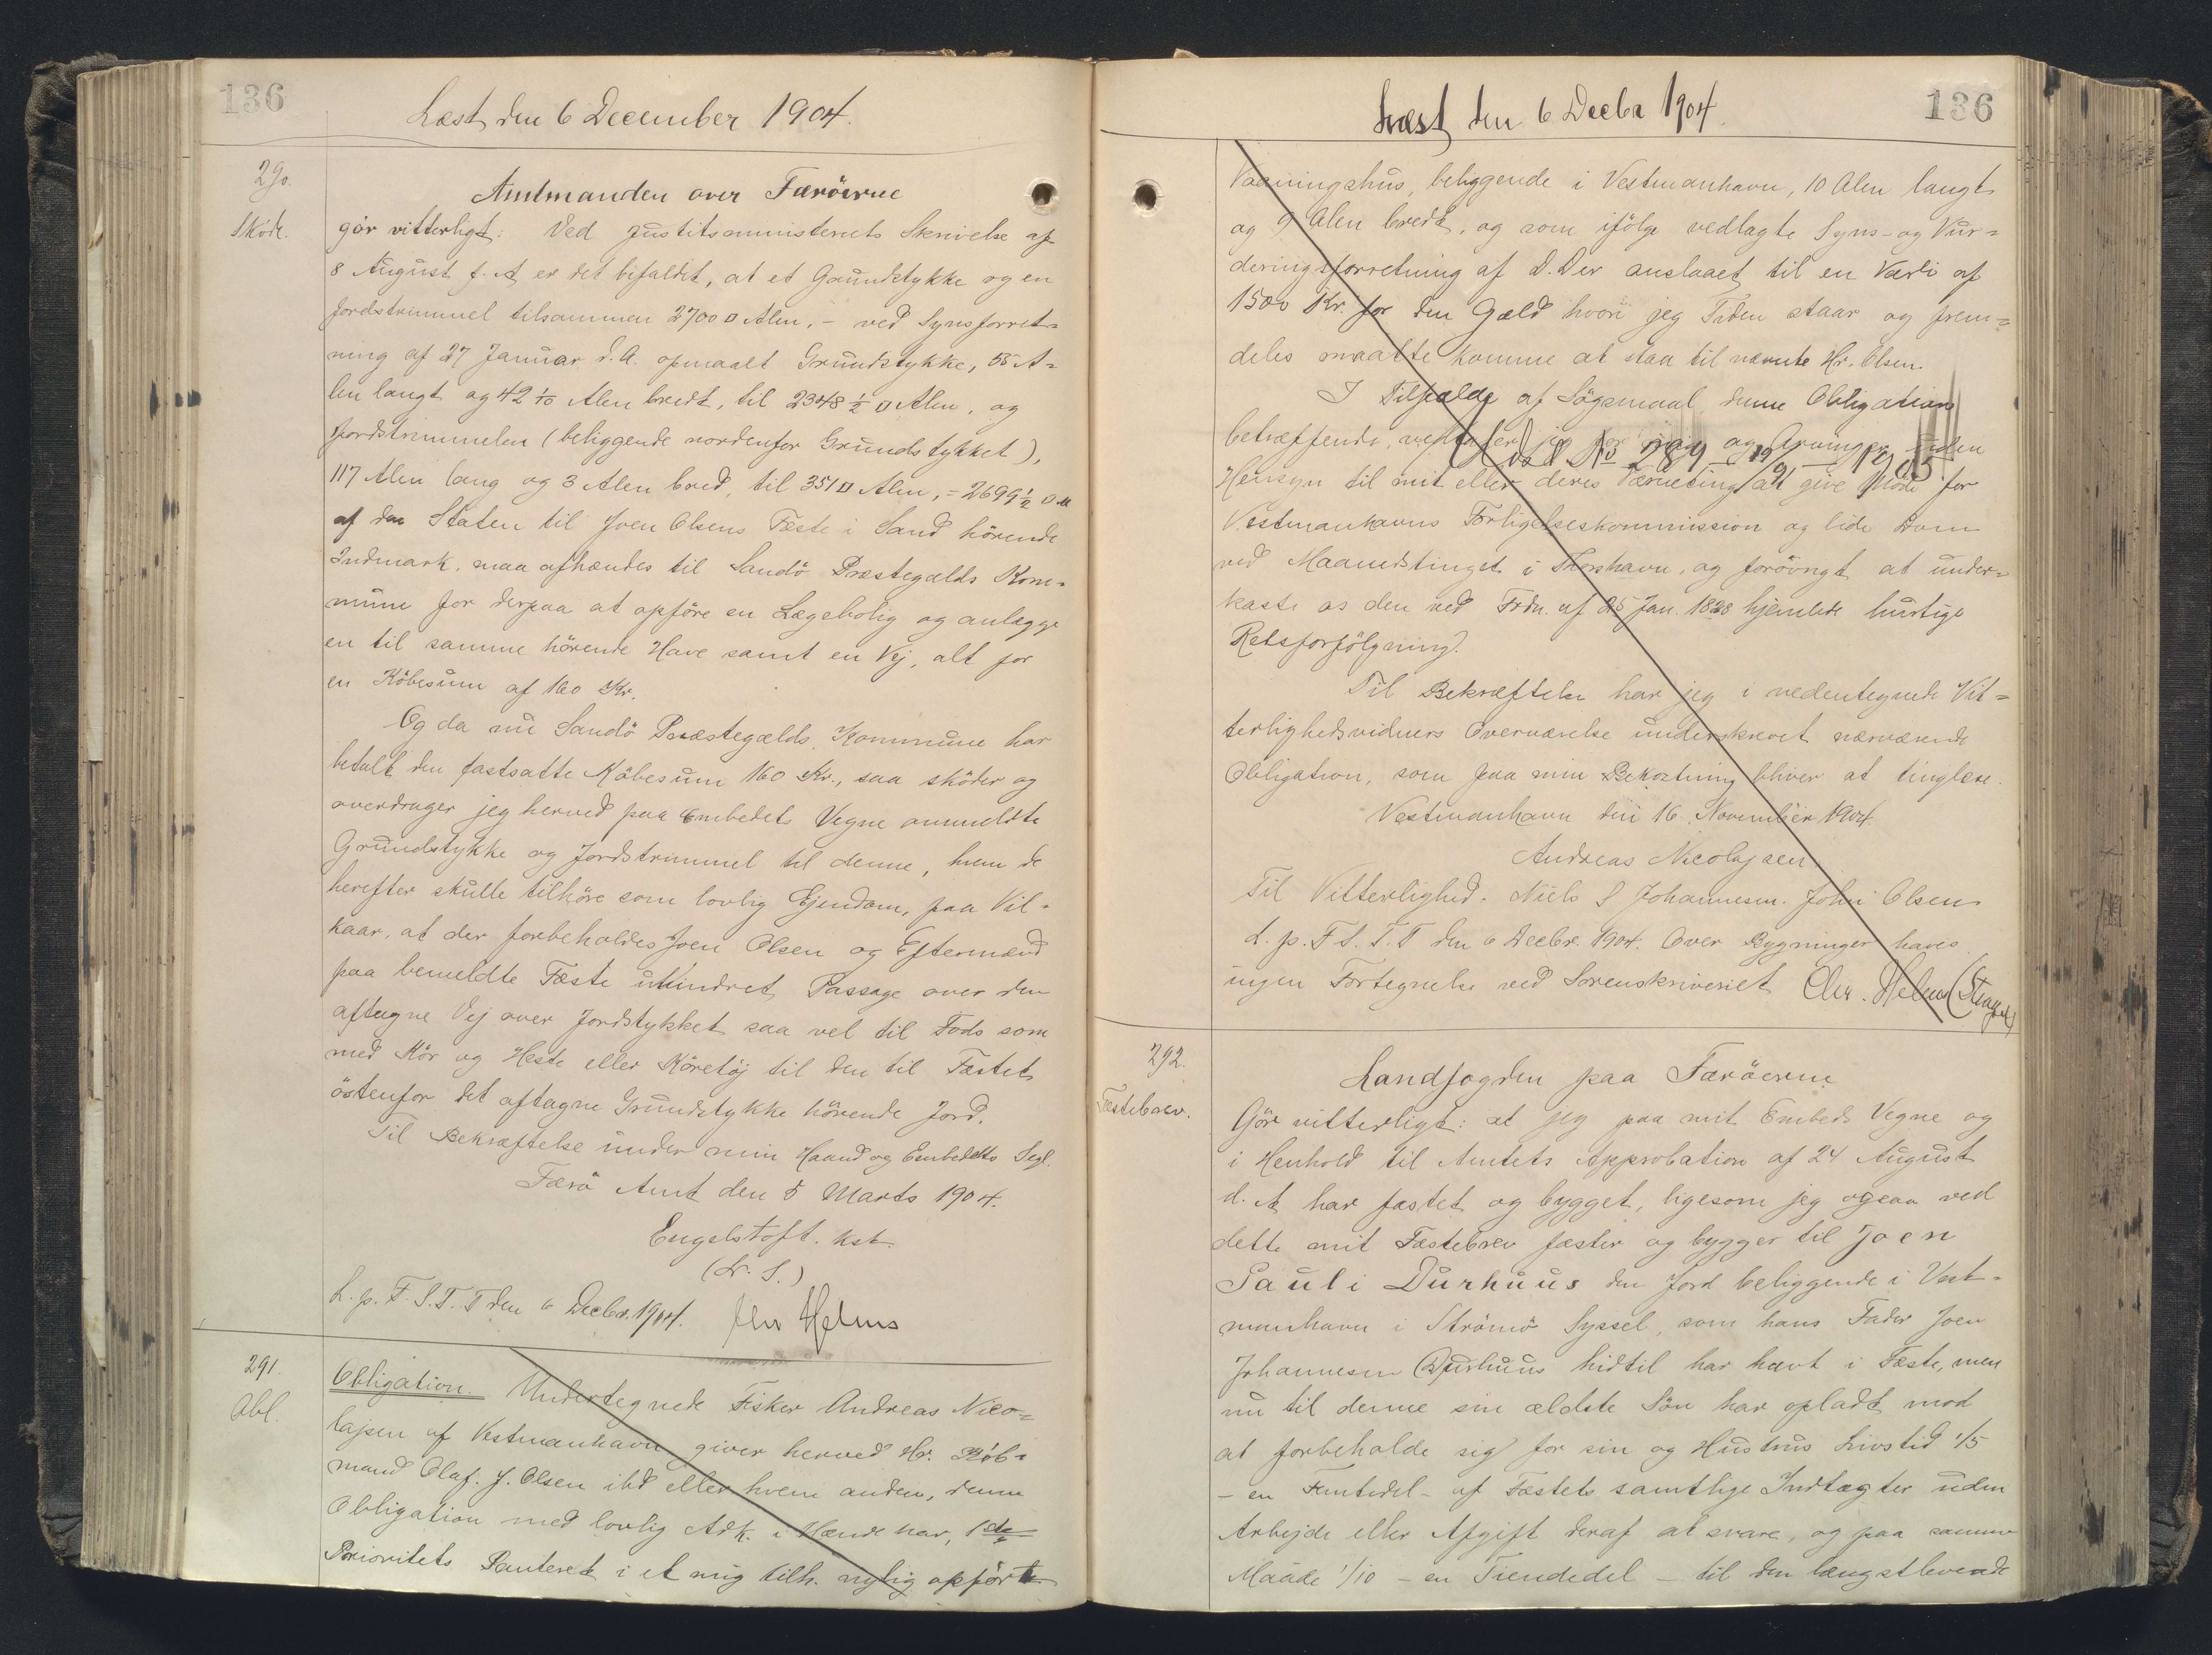 136
Læst den 6 December 1904.
290.
Skøde.
Amtmanden over Færöerne
gör vitterligt: Ved Justitsministeriets Skrivelse af
8 August f. A. er det bifaldet, at et Grundstykke og en
Jordstrimmel tilsammen 2700 □ Alen, - ved Synsforret=
ning af 27 Januar d. A. opmaalt Grundstykke, 55 A=
len langt og 42 7/10 Alen bredt, til 2348 ½ □ Alen, og
Jordstrimmelen (beliggende nordenfor Grundstykket),
117 Alen lang og 3 Alen bred, til 351 □ Alen, = 2699 ½ □ A
af den Staten til Joen Olsens Fæste i Sand hörende
Indmark, maa afhændes til Sandö Præstegælds Kom=
mune for derpaa at opföre en Lægebolig og anlægge
en til samme hörende Have samt en Vej, alt for
en Köbesum af 160 Kr.
Og da nu Sandö Præstegælds Kommune har
betalt den fastsatte Köbesum 160 Kr., saa sköder og
overdrager jeg herved paa Embedets Vegne ommeldte
Grundstykke og Jordstrimmel til denne, hvem de
herefter skulle tilhöre som lovlig Ejendom, paa Vil=
kaar, at der forbeholdes Joen Olsen og Eftermænd
paa bemeldte Fæste uhindret Passage over den
aftagne Vej over Jordstykket saa vel til Fods som
med Kör og Heste eller Köretöj til den til Fæstet
östenfor det aftagne Grundstykke hörende Jord.
Til Bekræftelse under min Haand og Embedets Segl.
Færö Amt den 8 Marts 1904.
Engelstoft. kst.
(L. S.)
L. p. F. S. T. T den 6 Decbr. 1904. Chr Helms
291.
Obl.
Obligation. Undertegnede Fisker Andreas Nico=
lajsen af Vestmanhavn giver herved Hr. Köb=
mand Olaf. J. Olsen ibd eller hvem anden, denne
Obligation med lovlig Adk. i Hænde har, 1ste
Prioritets Panteret i et mig tilh. nylig opfört
136
Læst den 6 Decbr 1904.
Vaaningshus, beliggende i Vestmanhavn, 10 Alen langt
og 9 Alen bredt, og som ifölge vedlagte Syns- og Vur=
deringsforretning af D. D. er anslaaet til en Værdi af
1500 Kr. for den Gæld hvori jeg Tiden staar og frem=
deles maatte komme at staa til nævnte Hr. Olsen.
I Tilfælde af Sögsmaal denne Obligation
betræffende, vedtager jeg for mig og Arvinger uden
Udsl No 289 19/9 1905
Hensyn til mit eller deres Værneting at give Möde for
Vestmanhavns Forligelseskommission og lide Dom
ved Maanedstinget i Thorshavn, og forövrigt at under=
kaste os den ved Frdn. af 25 Jan. 1828 hjemlede hurtige
Retsforfölgning.
Til Bekræftelse har jeg i nedentegnede Vit=
terlighedsvidners Overværelse underskrevet nærværende
Obligation, som paa min Bekostning bliver at tinglæse.
Vestmanhavn den 16. November 1904.
Andreas Nicolajsen
Til Vitterlighed. Niels S Johannesen. John Olsen
L. p. F. S. T. T den 6 Decbr. 1904. Over Bygninger haves
ingen Fortegnelse ved Sorenskriveriet Chr. Helms (Stempel)
292.
Fæstebrev.
Landfogden paa Færöerne
Gör vitterligt: at jeg paa mit Embeds Vegne og
i Henhold til Amtets Approbation af 24 August
d. A har fæstet og bygget, ligesom jeg ogsaa ved
dette mit Fæstebrev fæster og bygger til Joen
Pauli Durhuus den Jord beliggende i Vest=
manhavn i Strömö Syssel, som hans Fader Joen
Johannesen Durhuus hidtil har havt i Fæste, men
nu til denne sin ældste Sön har opladt mod
at forbeholde sig for sin og Hustrus Livstid 1/5
- en Femtedel - af Fæstets samtlige Indtægter uden
Arbejde eller Afgift deraf at svare, og paa samme
Maade 1/10 - en Tiendedel - til den længstlevende